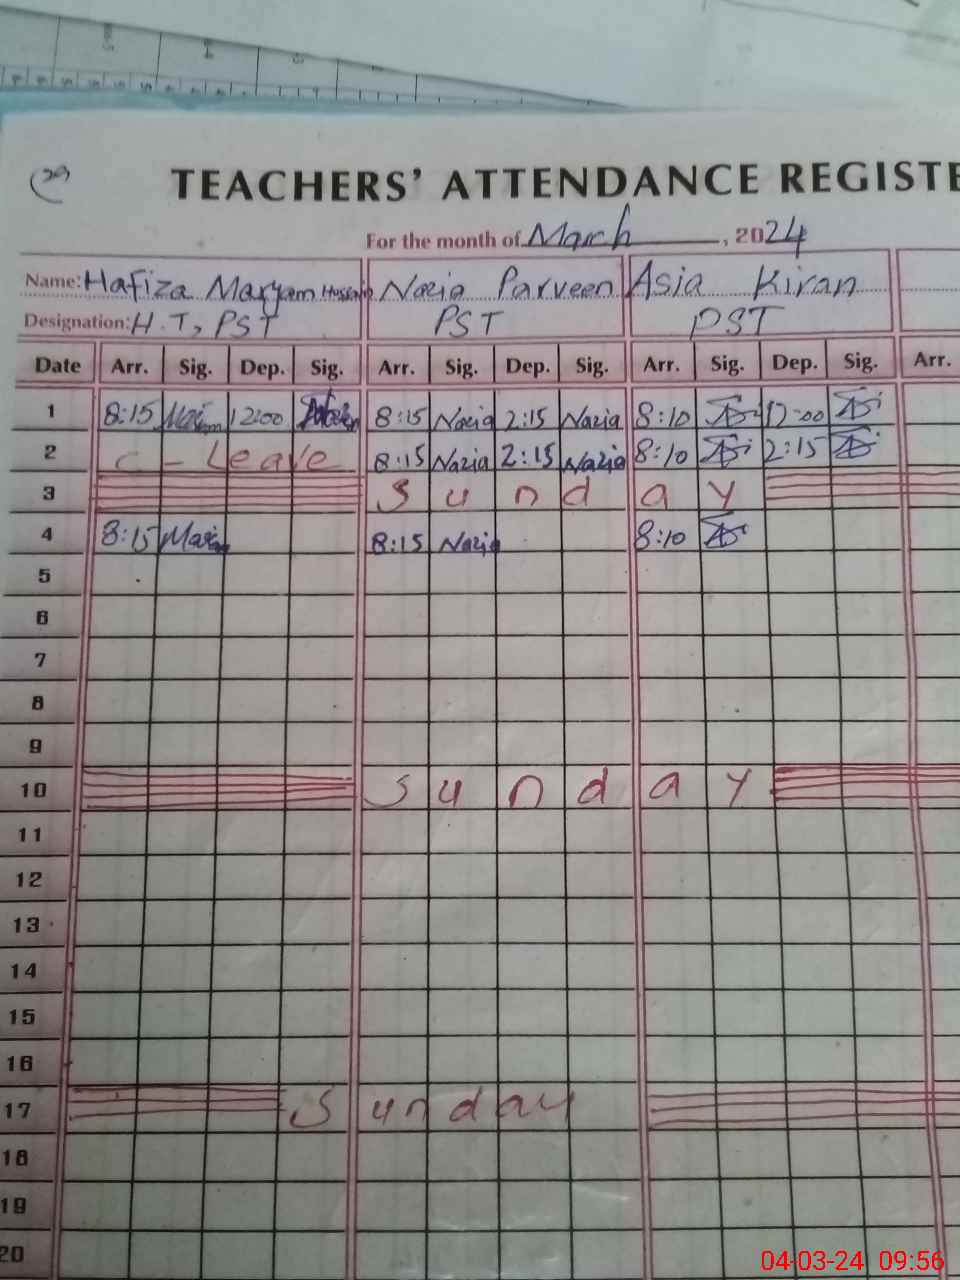 29
TEACHERS' ATTENDANCE REGISTE
For the month of March, 2024
Name: Hafiza Maryam Hussain Nazia Parveen Asia Kiran
Designation: H.T, PST PST PST
Date Arr. Sig. Dep. Sig. Arr. Sig. Dep. Sig. Arr. Sig. Dep. Sig. Arr.
1 8:15 12:00 8:15 Nazia 2:15 Nazia 8:10 12:00
2 C - Leave 8:15 Nazia 2:15 Nazia 8:10 2:15
3 Sunday
4 8:15 8:15 Nazia 8:10
5
6
7
8
9
10 Sunday
11
12
13
14
15
16
17 Sunday
18
19
20
04-03-24 09:56